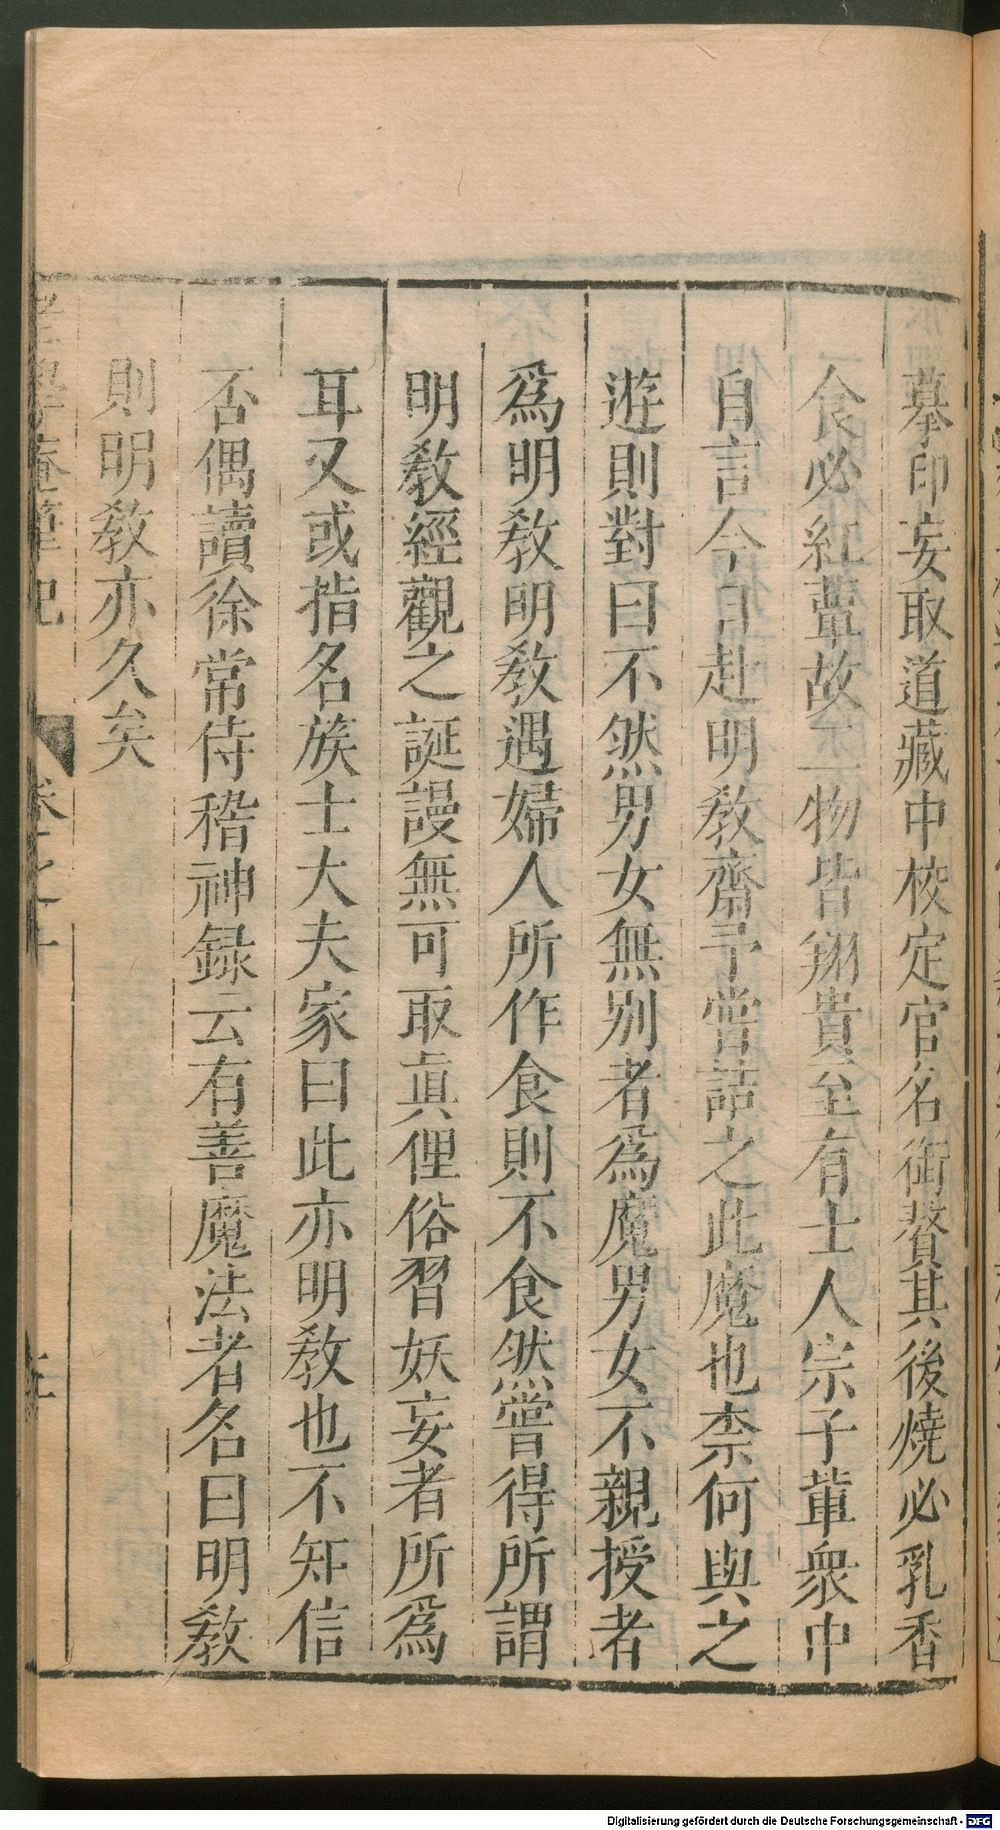 摹印妄取道藏中校定官名銜贅其後燒必乳香
食必紅蕈故二物皆翔貴至有士人宗子輩衆中
自言今日赴明教齋予嘗詰之此魔也柰何與之
遊則對曰不然男女無別者爲魔男女不親授者
爲明教明教遇婦人所作食則不食然嘗得所謂
明教經觀之誕謾無可取眞俚俗習妖妄者所爲
耳又或指名族士大夫家曰此亦明教也不知信
否偶讀徐常侍稽神録云有善魔法者名曰明教
則明教亦久矣
老學庵筆記 卷之十
Digitalisierung gefördert durch die Deutsche Forschungsgemeinschaft - DFG